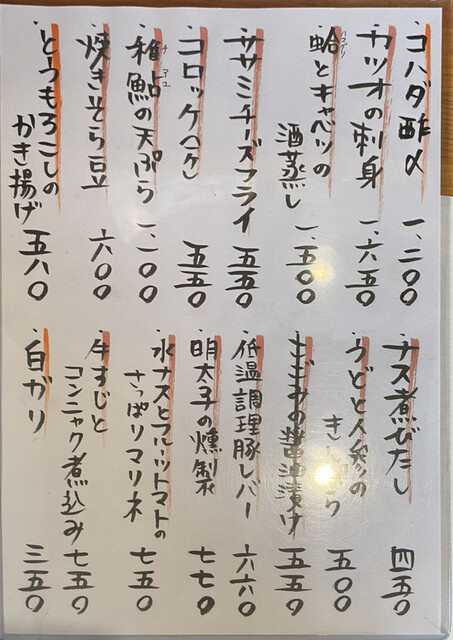 ・コハダ酢〆 一、二〇〇
・カツオの刺身 一、六五〇
・蛤とキャベツの
ハマグリ
酒蒸し 一、五〇〇
・ササミチーズフライ 五五〇
・コロッケ(ケ) 五五〇
・稚鮎の天ぷら 一、一〇〇
チアユ
・焼きそら豆 六〇〇
・とうもろこしの
かき揚げ 五八〇
・ナス煮びたし 四五〇
・うどと人参の
きんぴら 五〇〇
・こごみの醤油漬け 五五〇
・低温調理豚レバー 六六〇
・明太子の燻製 七七〇
・水ナスとフルーツトマトの
さっぱりマリネ 七五〇
・牛すじと
コンニャク煮込み 七五〇
・白ガリ 三五〇